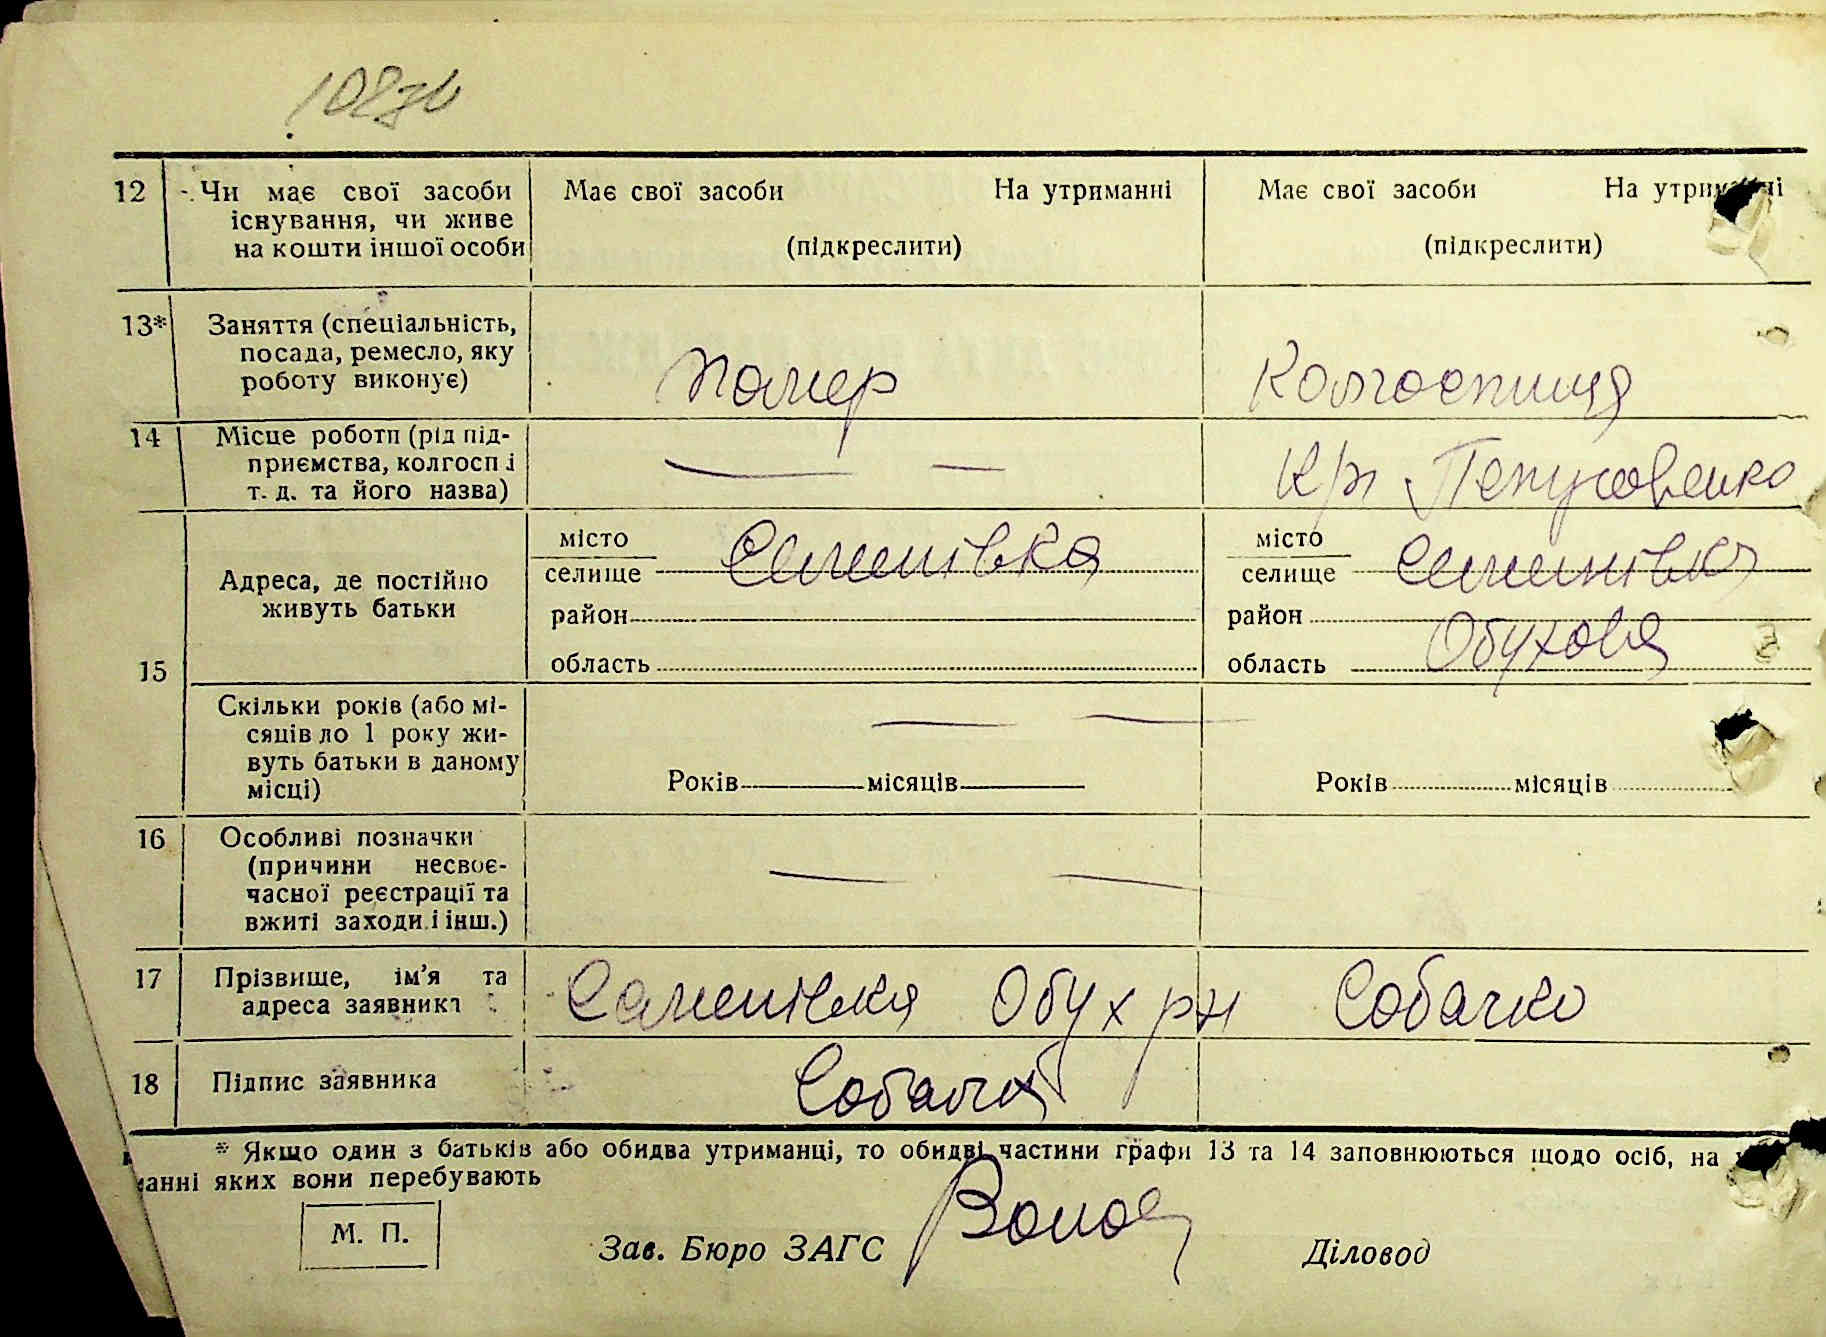 108зв
12 Чи має свої засоби існування, чи живе на кошти іншої особи
Має свої засоби На утриманні
(підкреслити)
Має свої засоби На утриманні
(підкреслити)
13* Заняття (спеціальність, посада, ремесло, яку роботу виконує)
помер
Колгоспниця
14 Місце роботи (рід під-
приємства, колгосп і
т. д. та його назва)
15
Адреса, де постійно
живуть батьки
місто
селище Семенівка
район
область
місто
селище Семенівка
район Обухова
область
Скільки років (або мі-
сяців до 1 року жи-
вуть батьки в даному
місці)
Років місяців
Років місяців
16 Особливі позначки
(причини несвоє-
часної реєстрації та
вжиті заходи і інш.)
17 Прізвише, ім'я та
адреса заявника
Семенівка Обух рн Собачко
18 Підпис заявника
Собачк
* Якщо один з батьків або обидва утриманці, то обидві частини графи 13 та 14 заповнюються щодо осіб, на
анні яких вони перебувають
М. П.
Зав. Бюро ЗАГС
Діловод